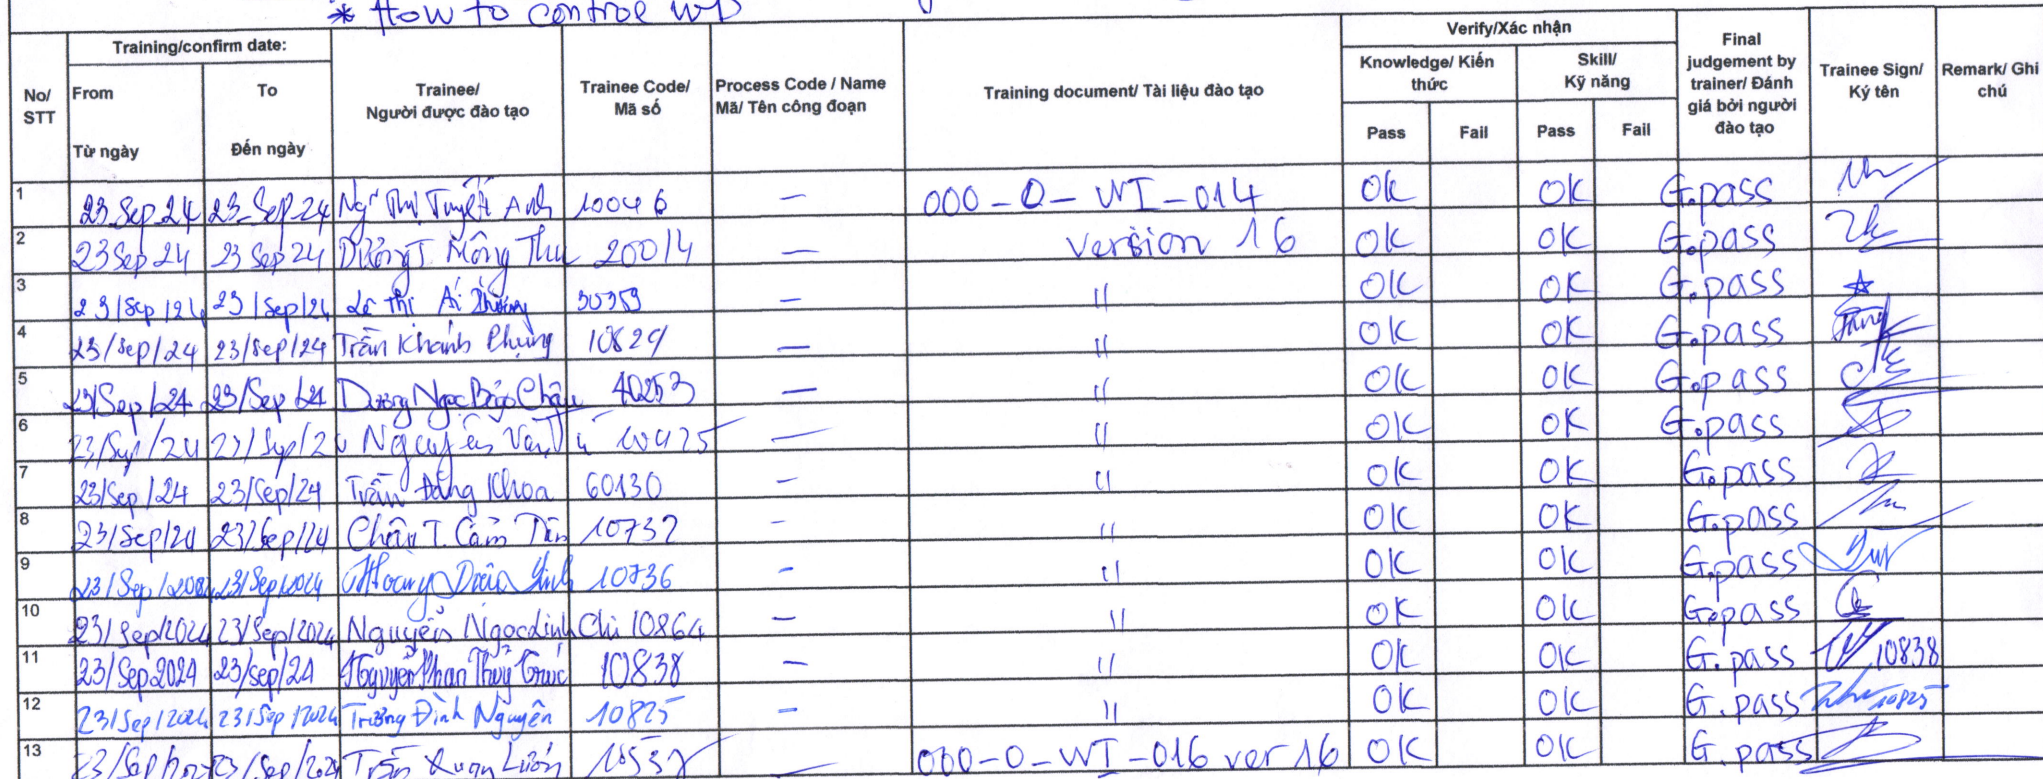 * How to control WI
No/ STT Training/confirm date: From Từ ngày To Đến ngày Trainee/ Người được đào tạo Trainee Code/ Mã số Process Code / Name Mã/ Tên công đoạn Training document/ Tài liệu đào tạo Verify/Xác nhận Knowledge/ Kiến thức Pass Fail Skill/ Kỹ năng Pass Fail Final judgement by trainer/ Đánh giá bởi người đào tạo Trainee Sign/ Ký tên Remark/ Ghi chú
1 23 Sep 24 23 Sep 24 Ng Thị Tuyết Anh 10046 – 000-0-WI-014 OK OK G.pass
2 23 Sep 24 23 Sep 24 Dương T. Mộng Thu 20014 – version 16 OK OK G.pass
3 23/Sep/24 23/Sep/24 Lê Thị Ái 30359 – " OK OK G.pass
4 23/Sep/24 23/Sep/24 Trần Khánh Phụng 10829 – " OK OK G.pass
5 23/Sep/24 23/Sep/24 Dương Ngọc Bảo Châu 40253 – " OK OK G.pass
6 23/Sep/24 23/Sep/2 Nguyễn Văn 10425 – " OK OK G.pass
7 23/Sep/24 23/Sep/24 Trần Đăng Khoa 60130 – " OK OK G.pass
8 23/Sep/24 23/Sep/24 Châu T. Cẩm 10732 – " OK OK G.pass
9 23/Sep/2024 23/Sep/2024 Hoàng 10736 – " OK OK G.pass
10 23/Sep/2024 23/Sep/2024 Nguyễn Ngọc Linh Chi 10864 – " OK OK G.pass
11 23/Sep2024 23/Sep/24 Nguyễn Phan Thủy Trúc 10838 – " OK OK G.pass 10838
12 23/Sep/2024 23/Sep/2024 Trương Đình Nguyên 10825 – " OK OK G.pass 10825
13 23/Sep/2024 23/Sep/2024 Trần Xuân – 000-0-WI-016 ver 16 OK OK G.pass